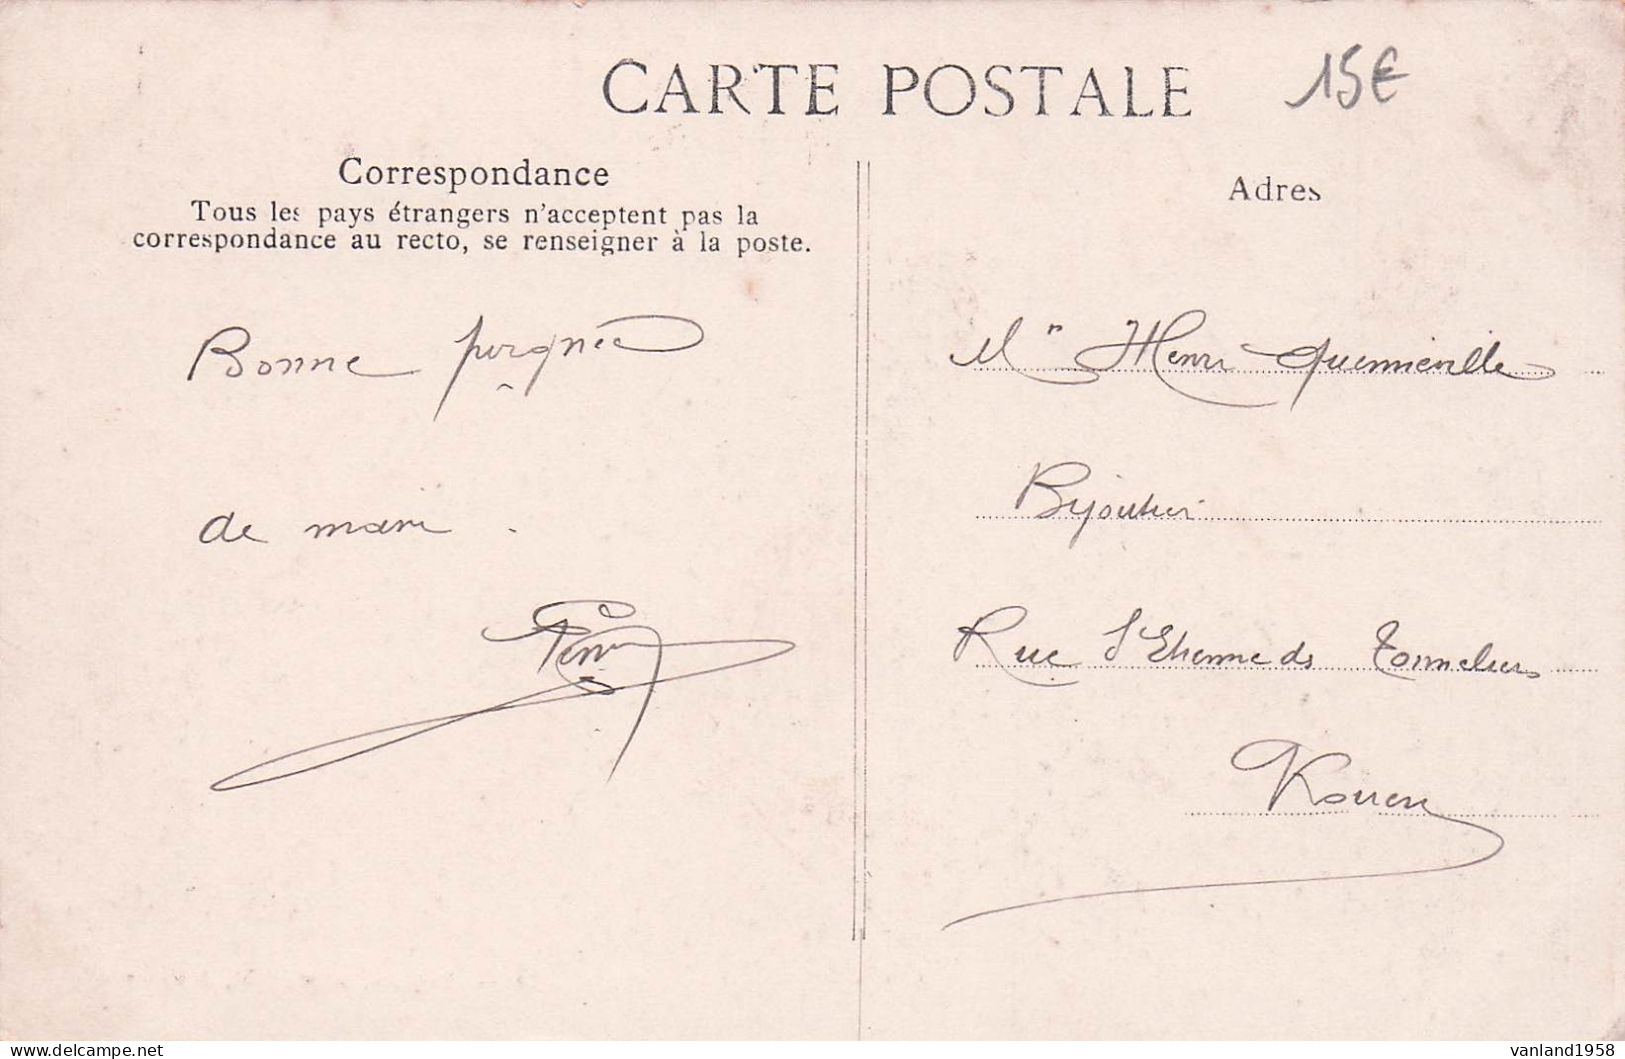 CARTE POSTALE
15€
Correspondance
Tous les pays étrangers n'acceptent pas la
correspondance au recto, se renseigner à la poste.
Adres
Bonne poignée
de main .
Mr Henri Quenneville
Bijoutier
Rue St Etienne des Tonneliers
Rouen
vanland1958